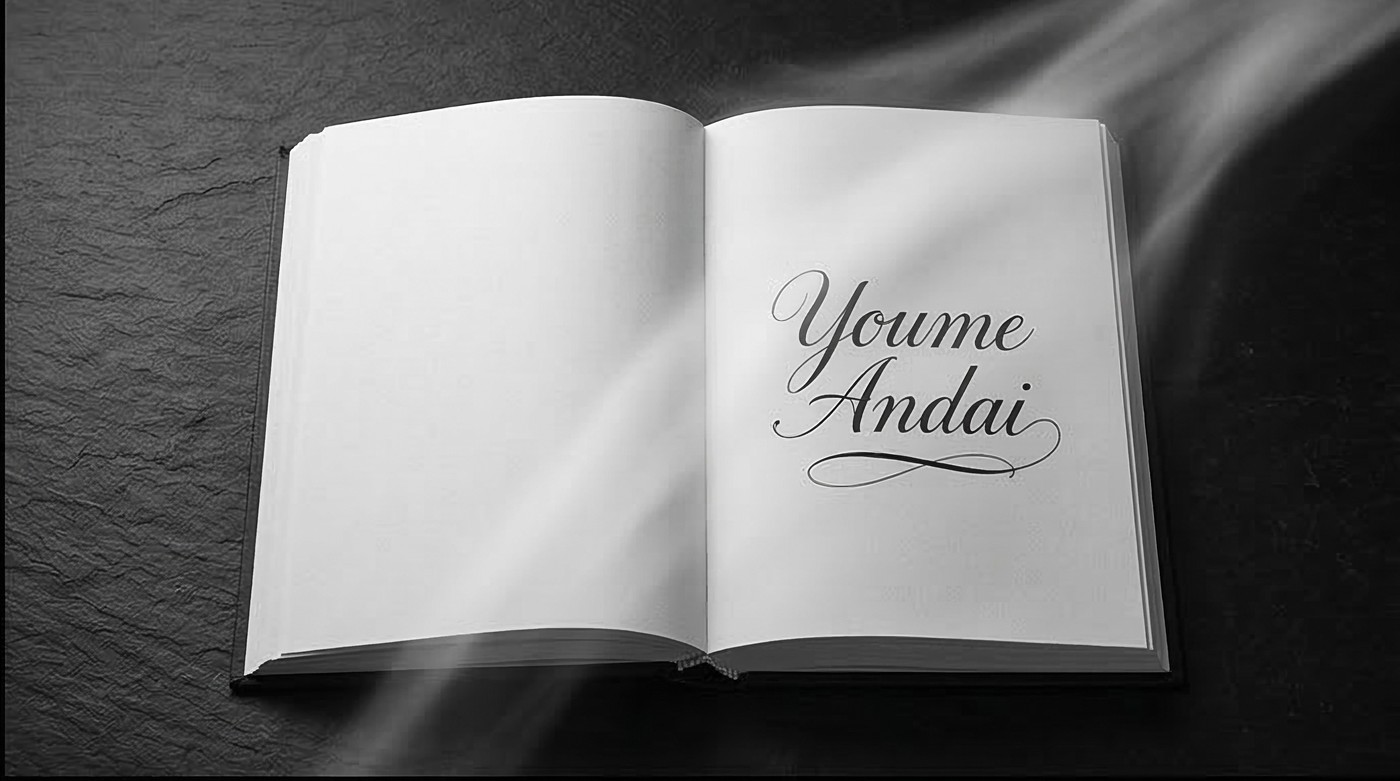 Youme
Andai